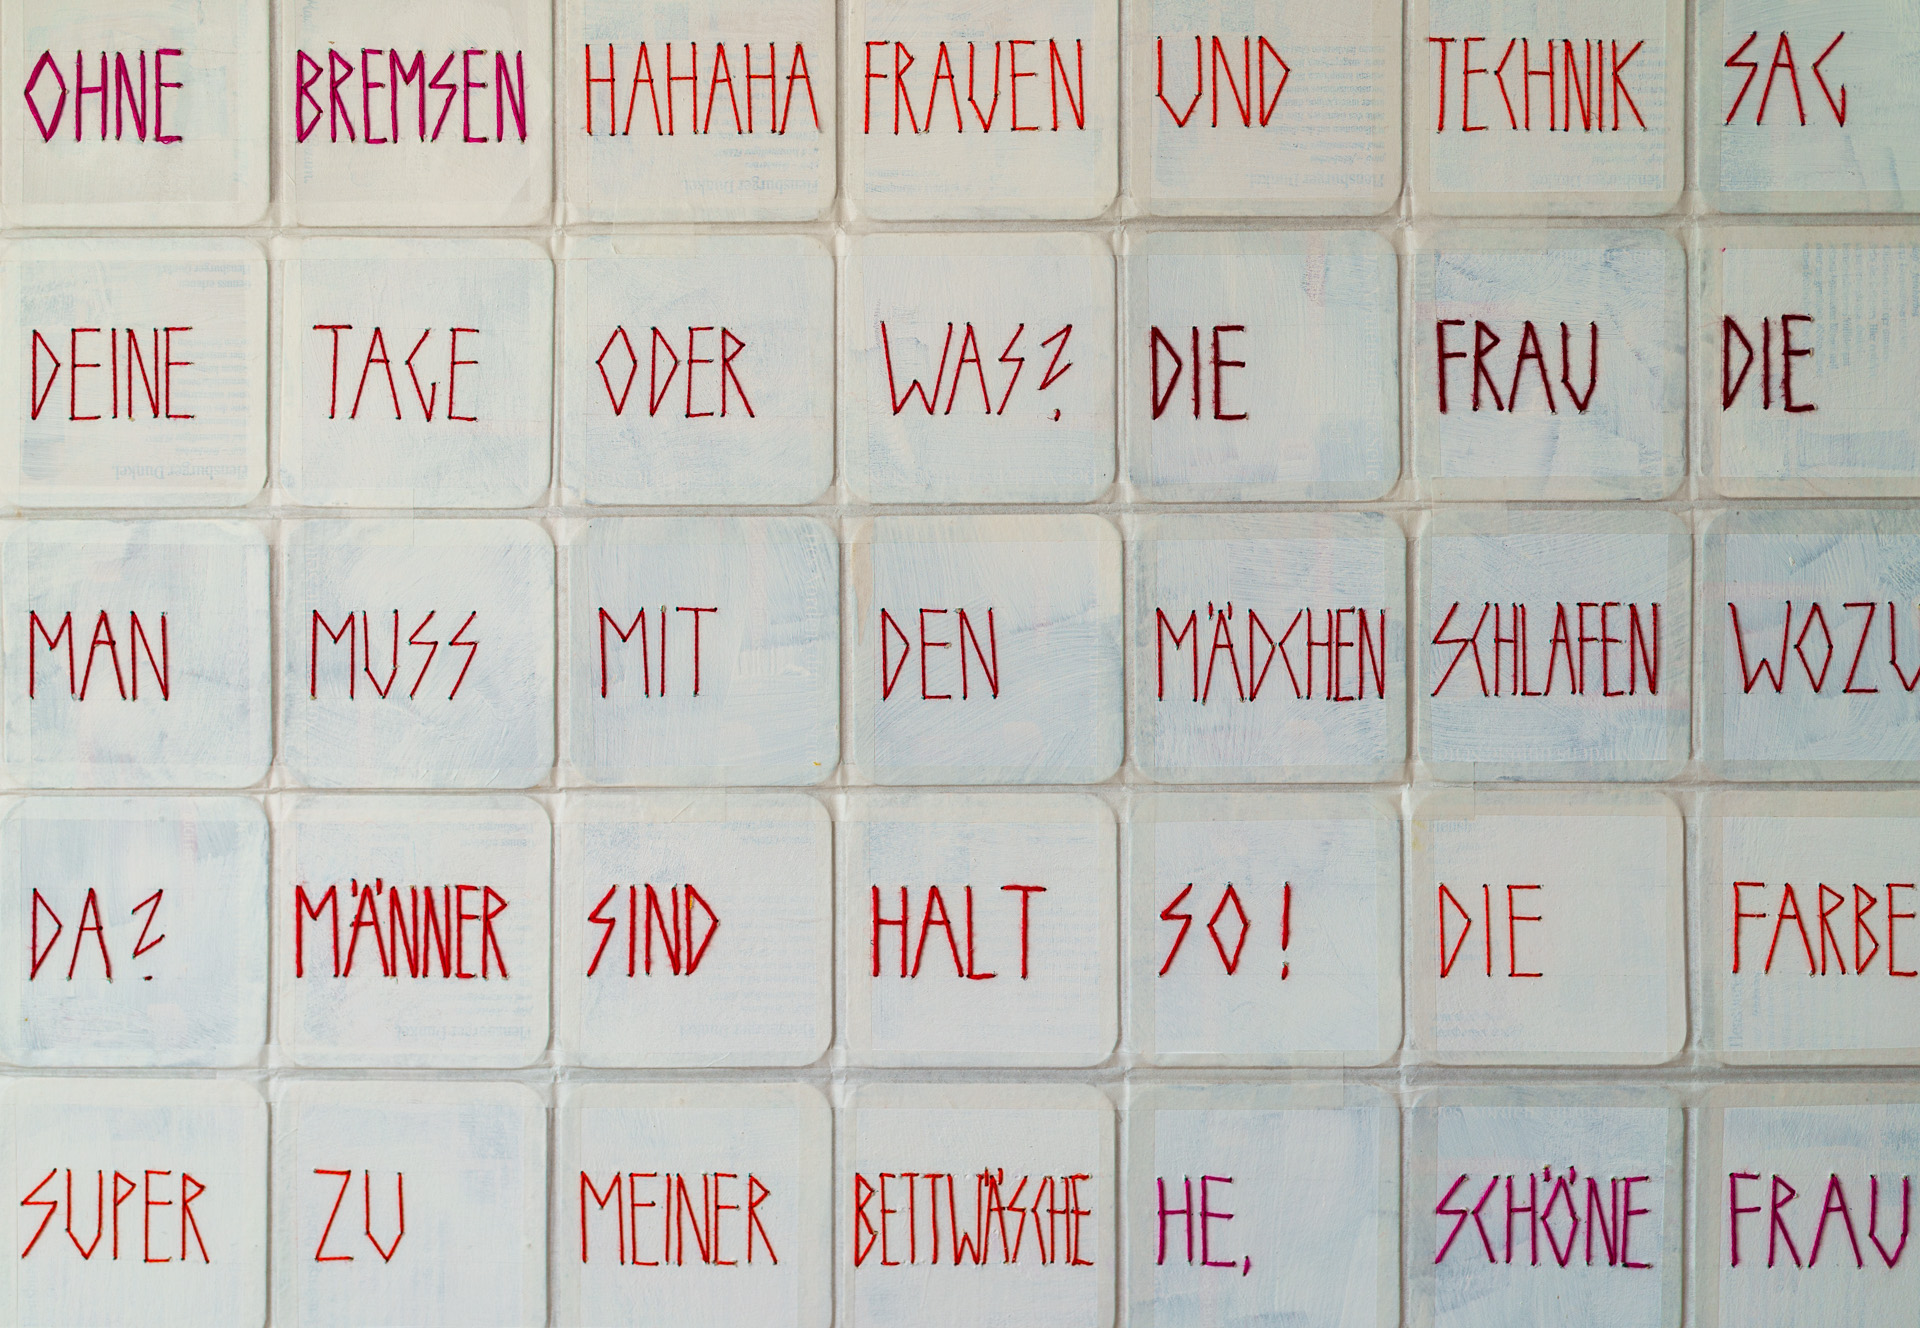 OHNE BREMSEN HAHAHA FRAUEN UND TECHNIK SAG
DEINE TAGE ODER WAS? DIE FRAU DIE
MAN MUSS MIT DEN MÄDCHEN SCHLAFEN WOZU
DA? MÄNNER SIND HALT SO! DIE FARBE
SUPER ZU MEINER BETTWÄSCHE HE, SCHÖNE FRAU